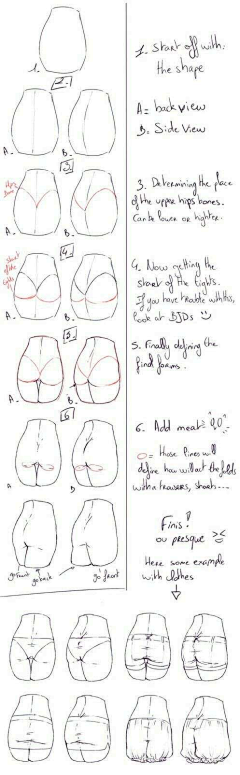 1.
1. Start off with:
the shape
2.
A = back view
B = Side View
A.
B.
3.
3. Determining the place
of the upper hips bones.
Can be lower or higher.
A.
B.
4.
start
of the
4. Now getting the
start of the tights.
If you have trouble with this,
look at BJDs
A.
B.
5.
5. Finally defining the
find forms.
A.
B.
6
6. Add meat
= those lines will
define how will act the folds
within trousers, shorts...
A
B
go front
go back
go front
Finis!
ou presque ><
Here some example
with clothes